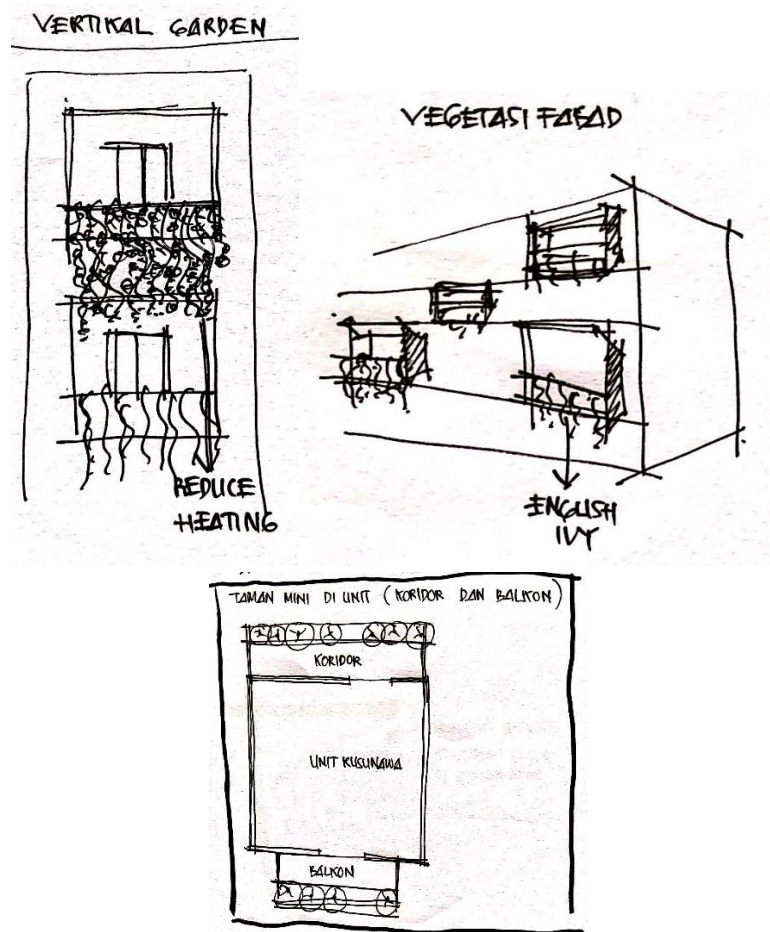 VERTIKAL GARDEN
REDUCE
HEATING
VEGETASI FASAD
ENGLISH
IVY
TAMAN MINI DI UNIT (KORIDOR DAN BALKON)
KORIDOR
UNIT RUSUNAWA
BALKON